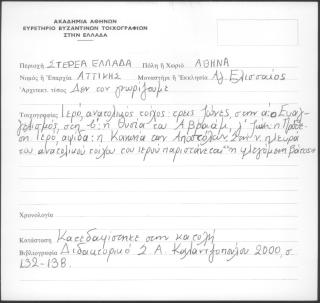 ΑΚΑΔΗΜΙΑ ΑΘΗΝΩΝ
ΕΥΡΕΤΗΡΙΟ ΒΥΖΑΝΤΙΝΩΝ ΤΟΙΧΟΓΡΑΦΙΩΝ
ΣΤΗΝ ΕΛΛΑΔΑ
Περιοχή ΣΤΕΡΕΑ ΕΛΛΑΔΑ Πόλη ἤ Χωριό ΑΘΗΝΑ
Νομός ἤ Ἐπαρχία ΑΤΤΙΚΗΣ Μοναστήρι ἤ Ἐκκλησία Αγ. Ελισσαίος
Ἀρχιτεκτ. τύπος Δεν τον γνωρίζουμε
Τοιχογραφίες Ιερό, ανατολικός τοίχος: τρεις ζώνες, στην α: ο Ευαγ-
γελισμός, στη β: η Θυσία του Αβραάμ, γ ζώνη η Πρόθε-
ση Ιερό, αψίδα: η Κοινωνία των Αποστόλων. Στην ν. πλευρά
του ανατολικού τοίχου του ιερού παριστάνεται η φλεγόμενη βάτος
Χρονολογία
Κατάσταση Κατεδαφίστηκε στην κατοχή
Βιβλιογραφία Διδακτορικό Σ. Α. Καλαντζοπούλου 2000, σ.
132-138.